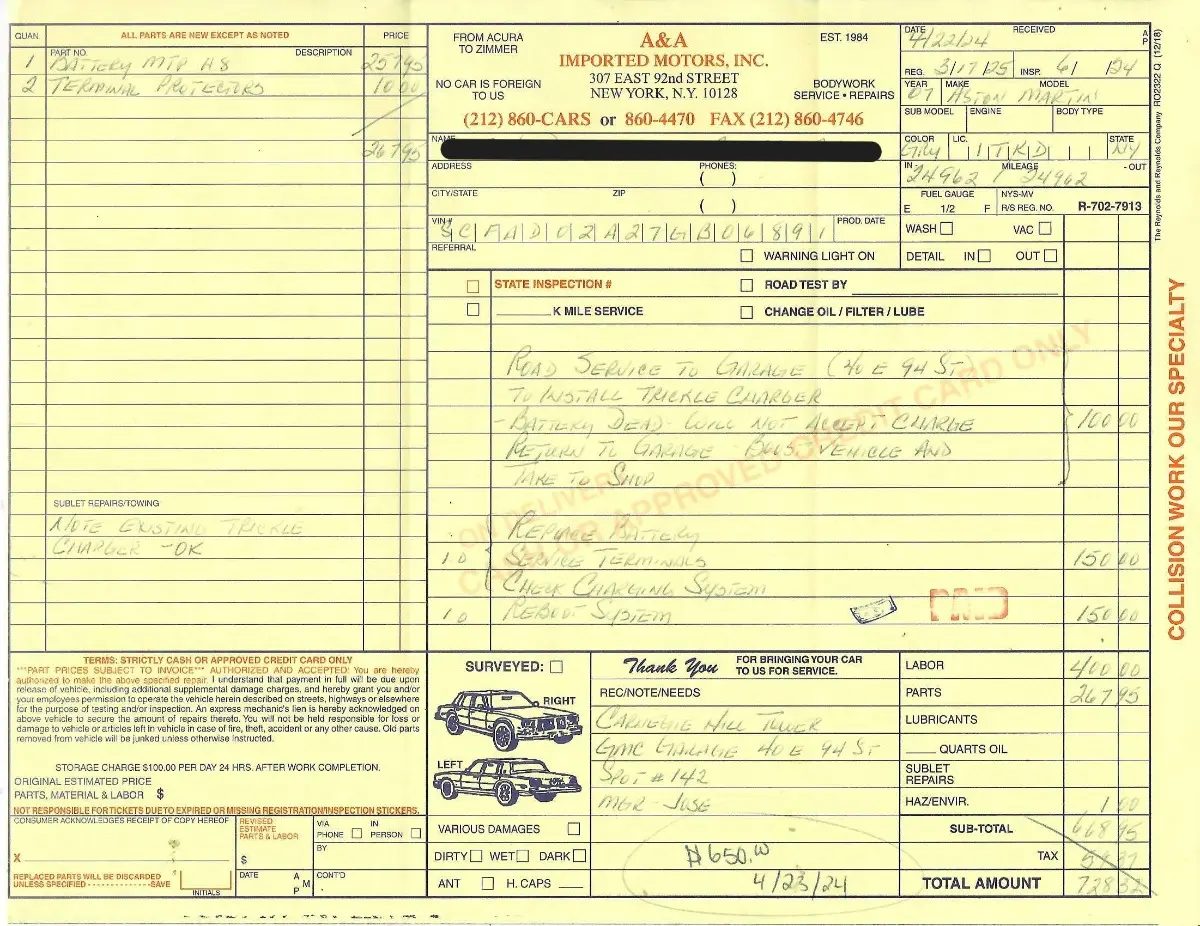 QUAN. ALL PARTS ARE NEW EXCEPT AS NOTED PRICE
PART NO. DESCRIPTION
1 BATTERY MTP H8 257 95
2 TERMINAL PROTECTORS 10 00
267 95
SUBLET REPAIRS/TOWING
NOTE EXISTING TRICKLE
CHARGER -OK
FROM ACURA
TO ZIMMER
NO CAR IS FOREIGN
TO US
A&A
IMPORTED MOTORS, INC.
307 EAST 92nd STREET
NEW YORK, N.Y. 10128
EST. 1984
BODYWORK
SERVICE • REPAIRS
(212) 860-CARS or 860-4470 FAX (212) 860-4746
NAME
ADDRESS PHONES:
( )
CITY/STATE ZIP
( )
VIN # PROD. DATE
SCFAD02A27GB06891
REFERRAL
WARNING LIGHT ON
DATE RECEIVED A P
4/22/24
REG. 3/17/25 INSP. 6/ /24
YEAR MAKE MODEL
07 ASTON MARTIN
SUB MODEL ENGINE BODY TYPE
COLOR LIC. STATE
GRY 1TKD NY
IN- MILEAGE -OUT
24962 / 24962
FUEL GAUGE NYS-MV
E 1/2 F R/S REG. NO. R-702-7913
WASH VAC
DETAIL IN OUT
The Reynolds and Reynolds Company RO2322 Q (12/18)
STATE INSPECTION # ROAD TEST BY
K MILE SERVICE CHANGE OIL / FILTER / LUBE
ROAD SERVICE TO GARAGE (40 E 94 ST)
TO INSTALL TRICKLE CHARGER
- BATTERY DEAD - WILL NOT ACCEPT CHARGE 100 00
RETURN TO GARAGE BOOST VEHICLE AND
TAKE TO SHOP
REPLACE BATTERY
1.0 SERVICE TERMINALS 150 00
CHECK CHARGING SYSTEM
1.0 REBOOT SYSTEM 150 00
ON DELIVERY
CASH OR APPROVED CREDIT CARD ONLY
PAID
COLLISION WORK OUR SPECIALTY
TERMS: STRICTLY CASH OR APPROVED CREDIT CARD ONLY
***PART PRICES SUBJECT TO INVOICE*** AUTHORIZED AND ACCEPTED: You are hereby
authorized to make the above specified repair. I understand that payment in full will be due upon
release of vehicle, including additional supplemental damage charges, and hereby grant you and/or
your employees permission to operate the vehicle herein described on streets, highways or elsewhere
for the purpose of testing and/or inspection. An express mechanic's lien is hereby acknowledged on
above vehicle to secure the amount of repairs thereto. You will not be held responsible for loss or
damage to vehicle or articles left in vehicle in case of fire, theft, accident or any other cause. Old parts
removed from vehicle will be junked unless otherwise instructed.
STORAGE CHARGE $100.00 PER DAY 24 HRS. AFTER WORK COMPLETION.
ORIGINAL ESTIMATED PRICE
PARTS, MATERIAL & LABOR $
NOT RESPONSIBLE FOR TICKETS DUE TO EXPIRED OR MISSING REGISTRATION/INSPECTION STICKERS.
CONSUMER ACKNOWLEDGES RECEIPT OF COPY HEREOF
X
REPLACED PARTS WILL BE DISCARDED
UNLESS SPECIFIED - - - - - - - - - - - - - -SAVE
INITIALS
REVISED
ESTIMATE
PARTS & LABOR
$
DATE A M P
VIA PHONE IN PERSON
BY
CONT'D
SURVEYED:
RIGHT
LEFT
VARIOUS DAMAGES
DIRTY WET DARK
ANT H. CAPS
Thank You FOR BRINGING YOUR CAR
TO US FOR SERVICE.
REC/NOTE/NEEDS
CARNEGIE HILL TOWER
GMC GARAGE 40 E 94 ST
SPOT # 142
MGR - JOSE
$650.00
4/23/24
LABOR 400 00
PARTS 267 95
LUBRICANTS
QUARTS OIL
SUBLET
REPAIRS
HAZ/ENVIR. 1 00
SUB-TOTAL 668 95
TAX 59 37
TOTAL AMOUNT 728 32